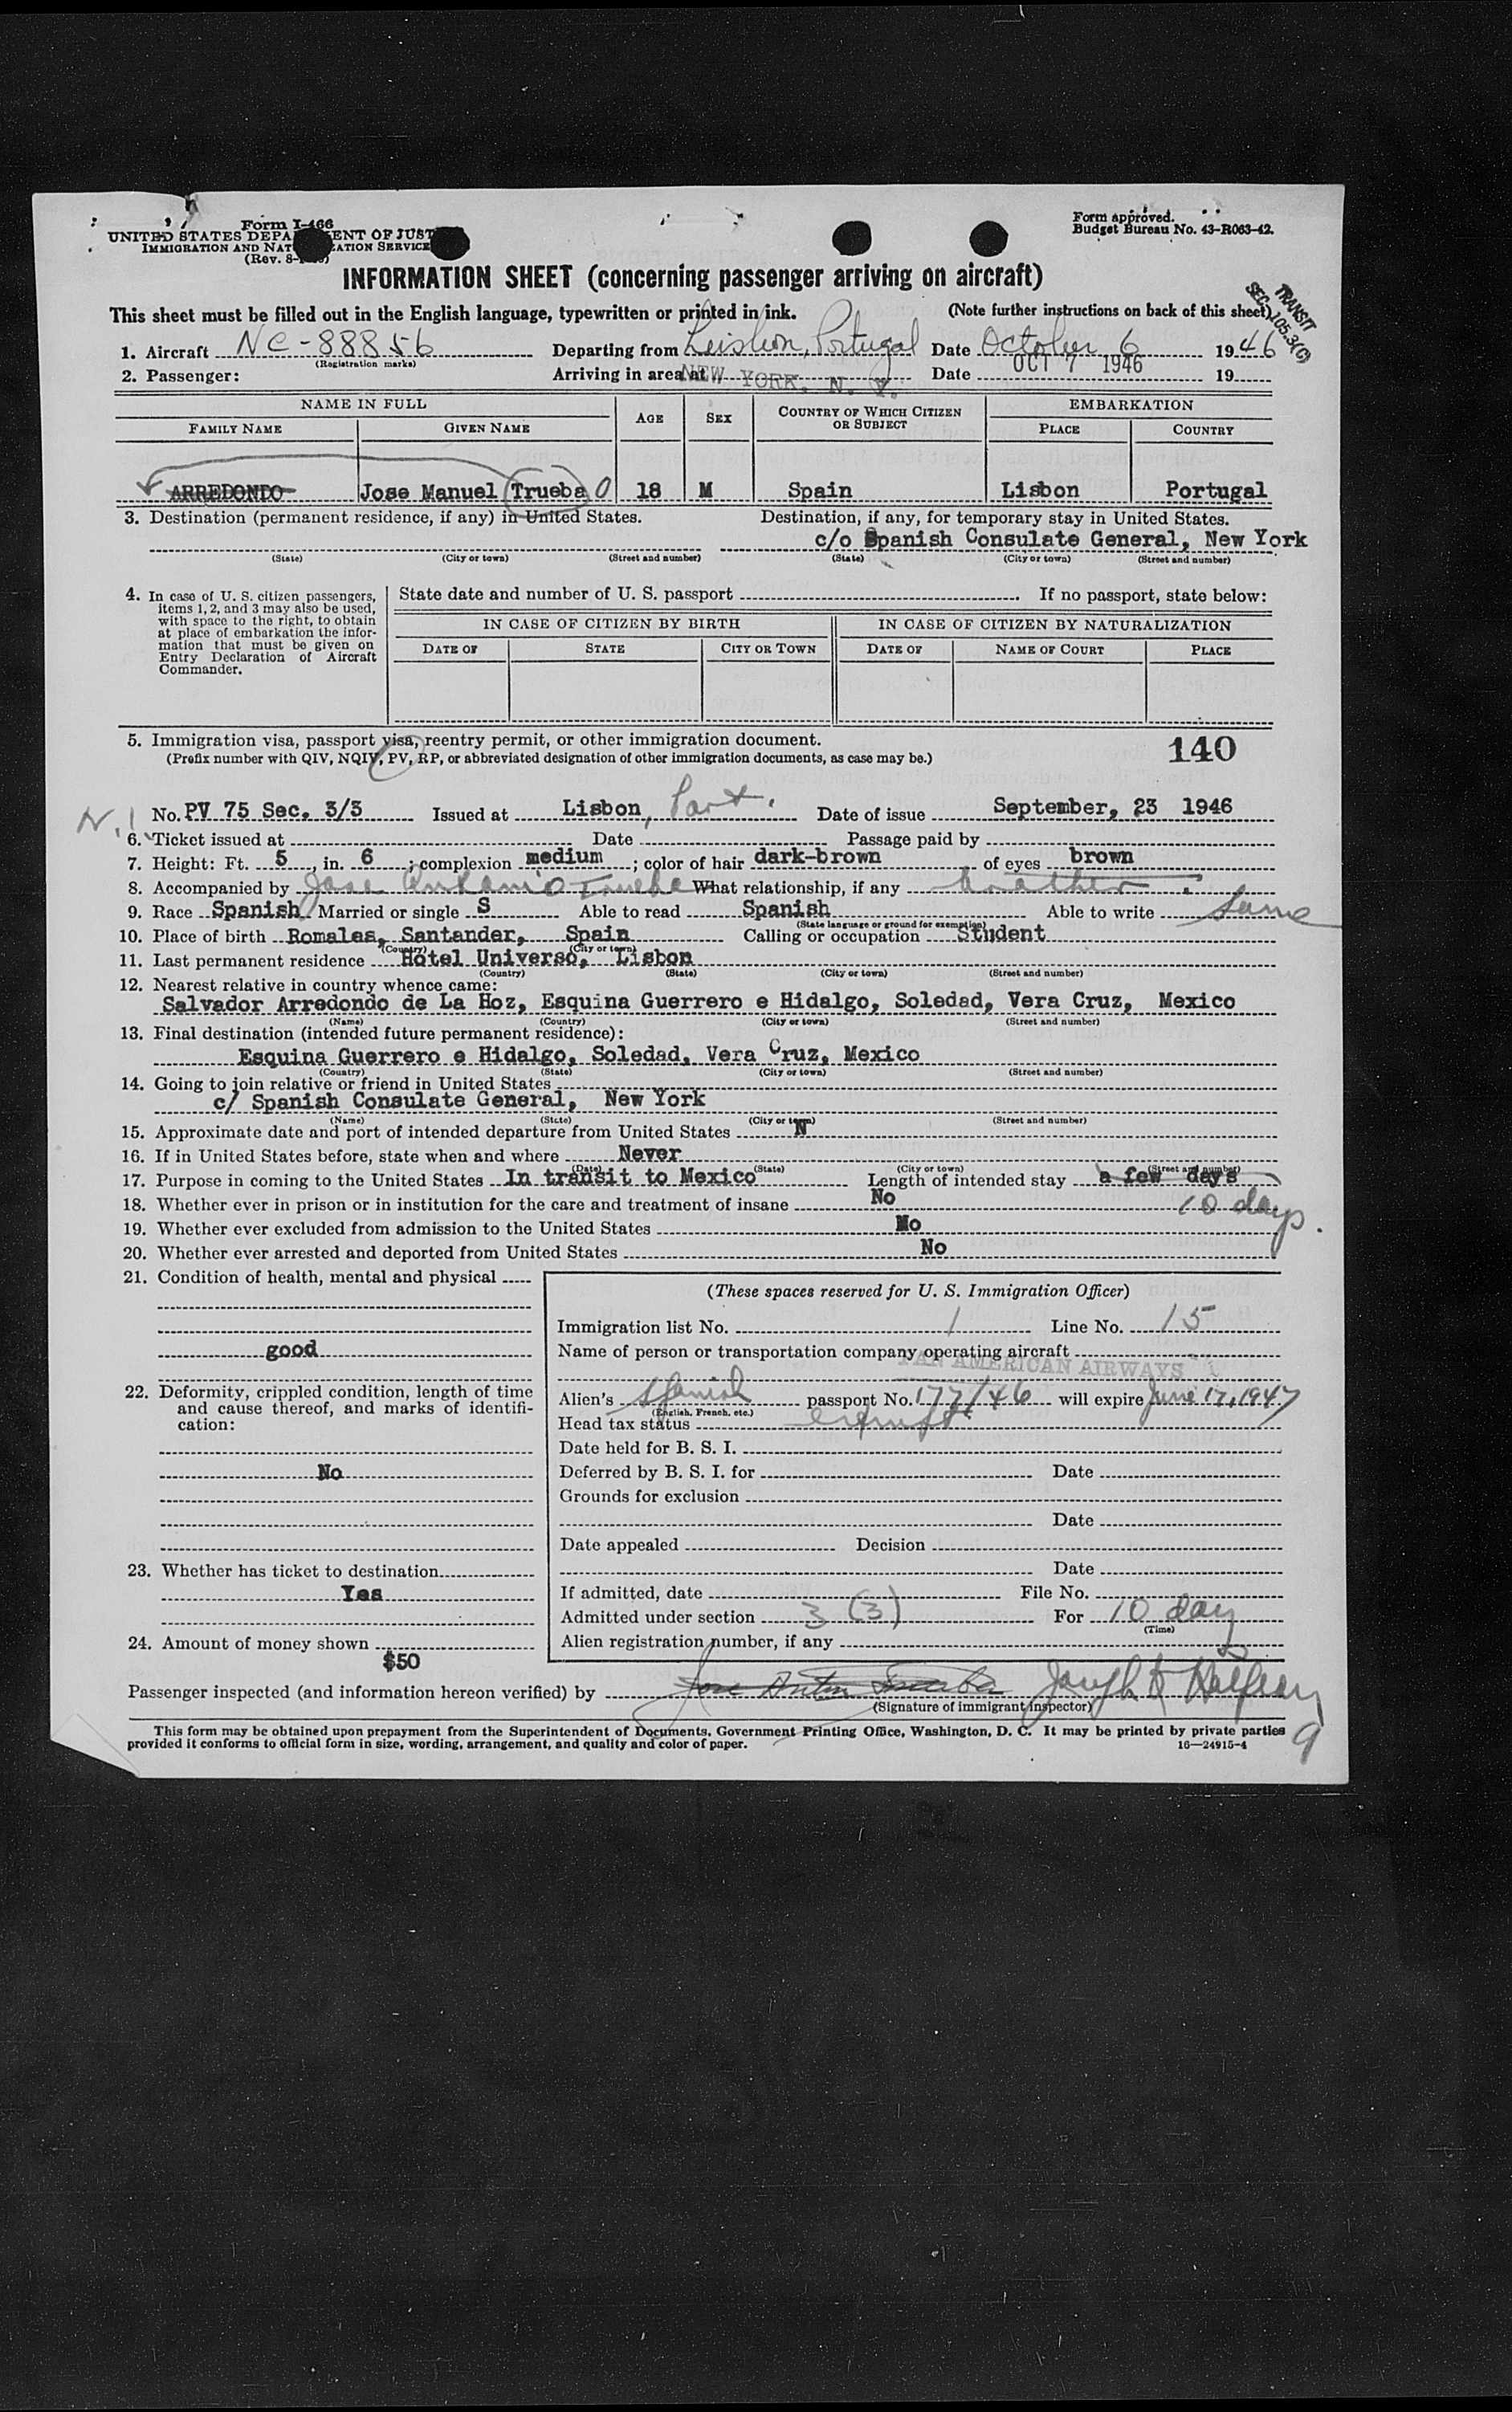 Form I-466
UNITED STATES DEPA ENT OF JUST
IMMIGRATION AND NAT ATION SERVICE
(Rev. 8-
Form approved.
Budget Bureau No. 43-R063-42.
INFORMATION SHEET (concerning passenger arriving on aircraft)
TRANSIT
SEC. 105.3(C)
This sheet must be filled out in the English language, typewritten or printed in ink. (Note further instructions on back of this sheet)
1. Aircraft NC-88856 Departing from Leisbon, Portugal Date October 6 1946
(Registration marks)
2. Passenger: Arriving in area at NEW YORK, N. Y. Date OCT 7 1946 19
NAME IN FULL AGE SEX COUNTRY OF WHICH CITIZEN OR SUBJECT EMBARKATION
FAMILY NAME GIVEN NAME PLACE COUNTRY
ARREDONDO Jose Manuel Trueba O 18 M Spain Lisbon Portugal
3. Destination (permanent residence, if any) in United States. Destination, if any, for temporary stay in United States.
c/o Spanish Consulate General, New York
(State) (City or town) (Street and number) (State) (City or town) (Street and number)
4. In case of U. S. citizen passengers, items 1, 2, and 3 may also be used, with space to the right, to obtain at place of embarkation the information that must be given on Entry Declaration of Aircraft Commander.
State date and number of U. S. passport If no passport, state below:
IN CASE OF CITIZEN BY BIRTH IN CASE OF CITIZEN BY NATURALIZATION
DATE OF STATE CITY OR TOWN DATE OF NAME OF COURT PLACE
5. Immigration visa, passport visa, reentry permit, or other immigration document. 140
(Prefix number with QIV, NQIV, PV, RP, or abbreviated designation of other immigration documents, as case may be.)
No. PV 75 Sec. 3/3 Issued at Lisbon, Port. Date of issue September, 23 1946
6. Ticket issued at Date Passage paid by
7. Height: Ft. 5, in. 6; complexion medium; color of hair dark-brown of eyes brown
8. Accompanied by Jose Antonio Trueba What relationship, if any brother
9. Race Spanish Married or single S Able to read Spanish Able to write Same
(State language or ground for exemption)
10. Place of birth Romales, Santander, Spain Calling or occupation Student
(Country) (City or town)
11. Last permanent residence Hotel Universo, Lisbon
(Country) (State) (City or town) (Street and number)
12. Nearest relative in country whence came:
Salvador Arredondo de La Hoz, Esquina Guerrero e Hidalgo, Soledad, Vera Cruz, Mexico
(Name) (Country) (City or town) (Street and number)
13. Final destination (intended future permanent residence):
Esquina Guerrero e Hidalgo, Soledad, Vera Cruz, Mexico
(Country) (State) (City or town) (Street and number)
14. Going to join relative or friend in United States
c/ Spanish Consulate General, New York
(Name) (State) (City or town) (Street and number)
15. Approximate date and port of intended departure from United States N
16. If in United States before, state when and where Never
(Date) (State) (City or town) (Street and number)
17. Purpose in coming to the United States In transit to Mexico Length of intended stay a few days
10 days.
18. Whether ever in prison or in institution for the care and treatment of insane No
19. Whether ever excluded from admission to the United States No
20. Whether ever arrested and deported from United States No
21. Condition of health, mental and physical
good
22. Deformity, crippled condition, length of time and cause thereof, and marks of identification:
No
23. Whether has ticket to destination
Yes
24. Amount of money shown
$50
(These spaces reserved for U. S. Immigration Officer)
Immigration list No. 1 Line No. 15
Name of person or transportation company operating aircraft
PAN AMERICAN AIRWAYS
Alien's Spanish passport No. 177/46 will expire June 17, 1947
(English, French, etc.)
Head tax status exempt
Date held for B. S. I.
Deferred by B. S. I. for Date
Grounds for exclusion
Date
Date appealed Decision
Date
If admitted, date File No.
Admitted under section 3 (3) For 10 days
(Time)
Alien registration number, if any
Passenger inspected (and information hereon verified) by Jose Anton Trueba Joseph
(Signature of immigrant inspector)
This form may be obtained upon prepayment from the Superintendent of Documents, Government Printing Office, Washington, D. C. It may be printed by private parties
provided it conforms to official form in size, wording, arrangement, and quality and color of paper. 16—24915-4
9